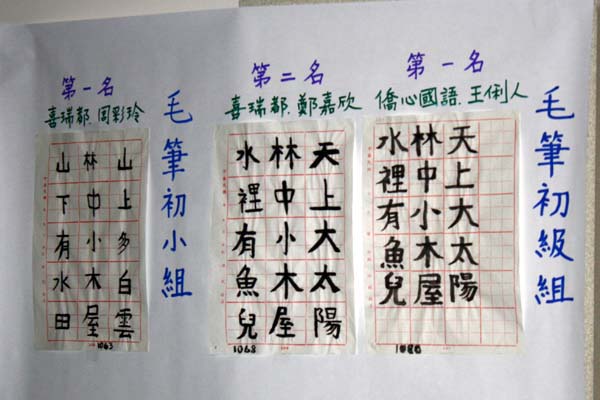 毛筆初級組
第一名
僑心國語.王俐人
天上大太陽
林中小木屋
水裡有魚兒
第二名
喜瑞都.鄭嘉欣
天上大太陽
林中小木屋
水裡有魚兒
1068
毛筆初小組
第一名
喜瑞都.周彩玲
山上多白雲
林中小木屋
山下有水田
1063